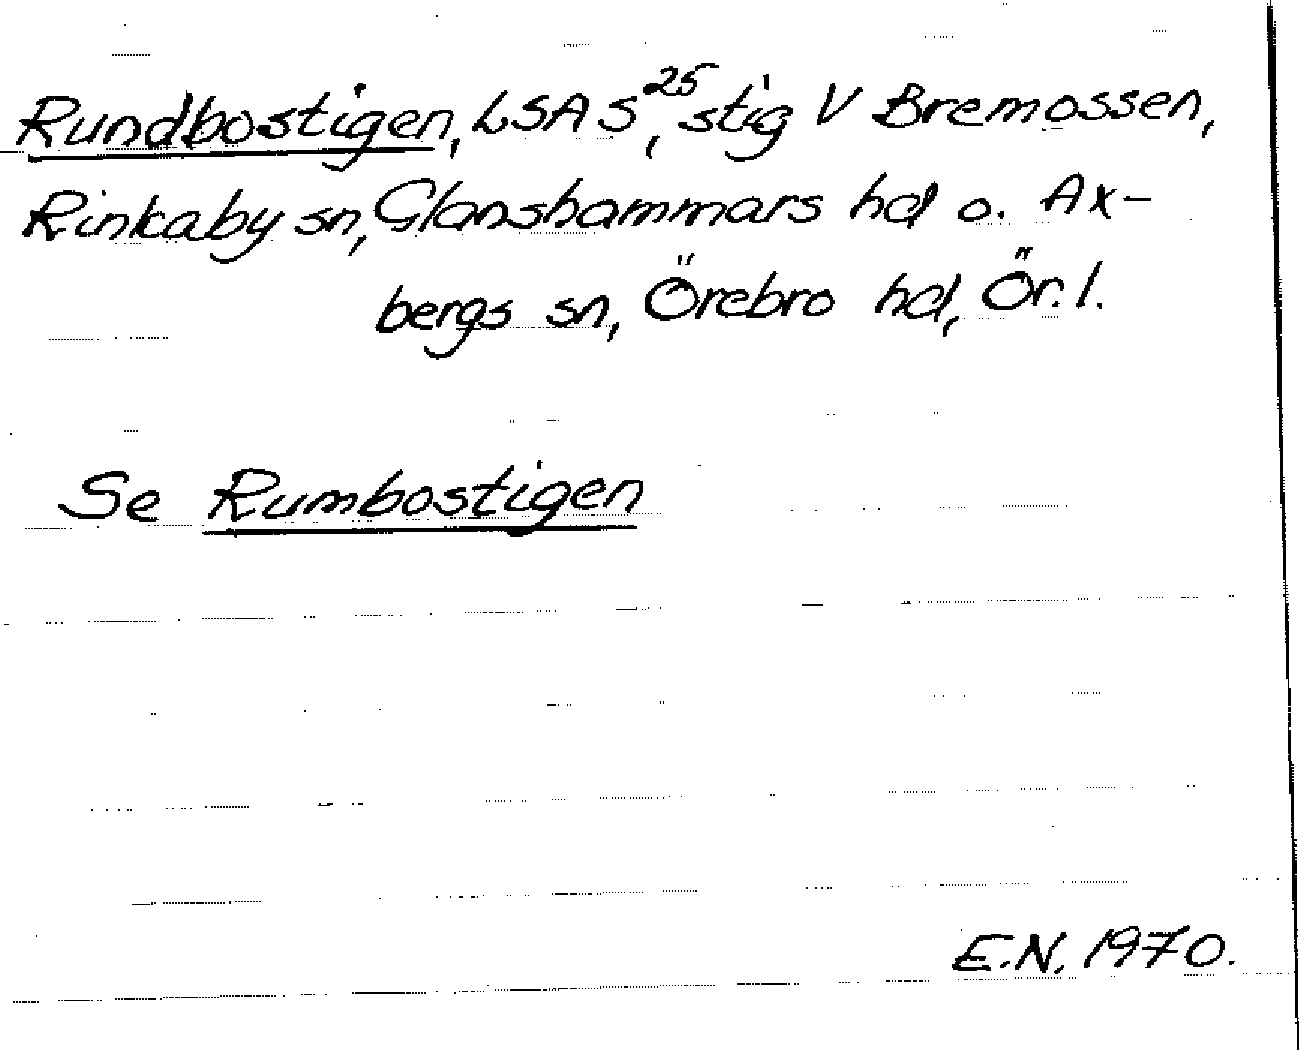 Rundbostigen, LSA S²⁵, stig V Bremossen,
Rinkaby sn, Glanshammars hd o. Ax-
bergs sn, Örebro hd, Ör. l.
Se Rumbostigen
E.N. 1970.